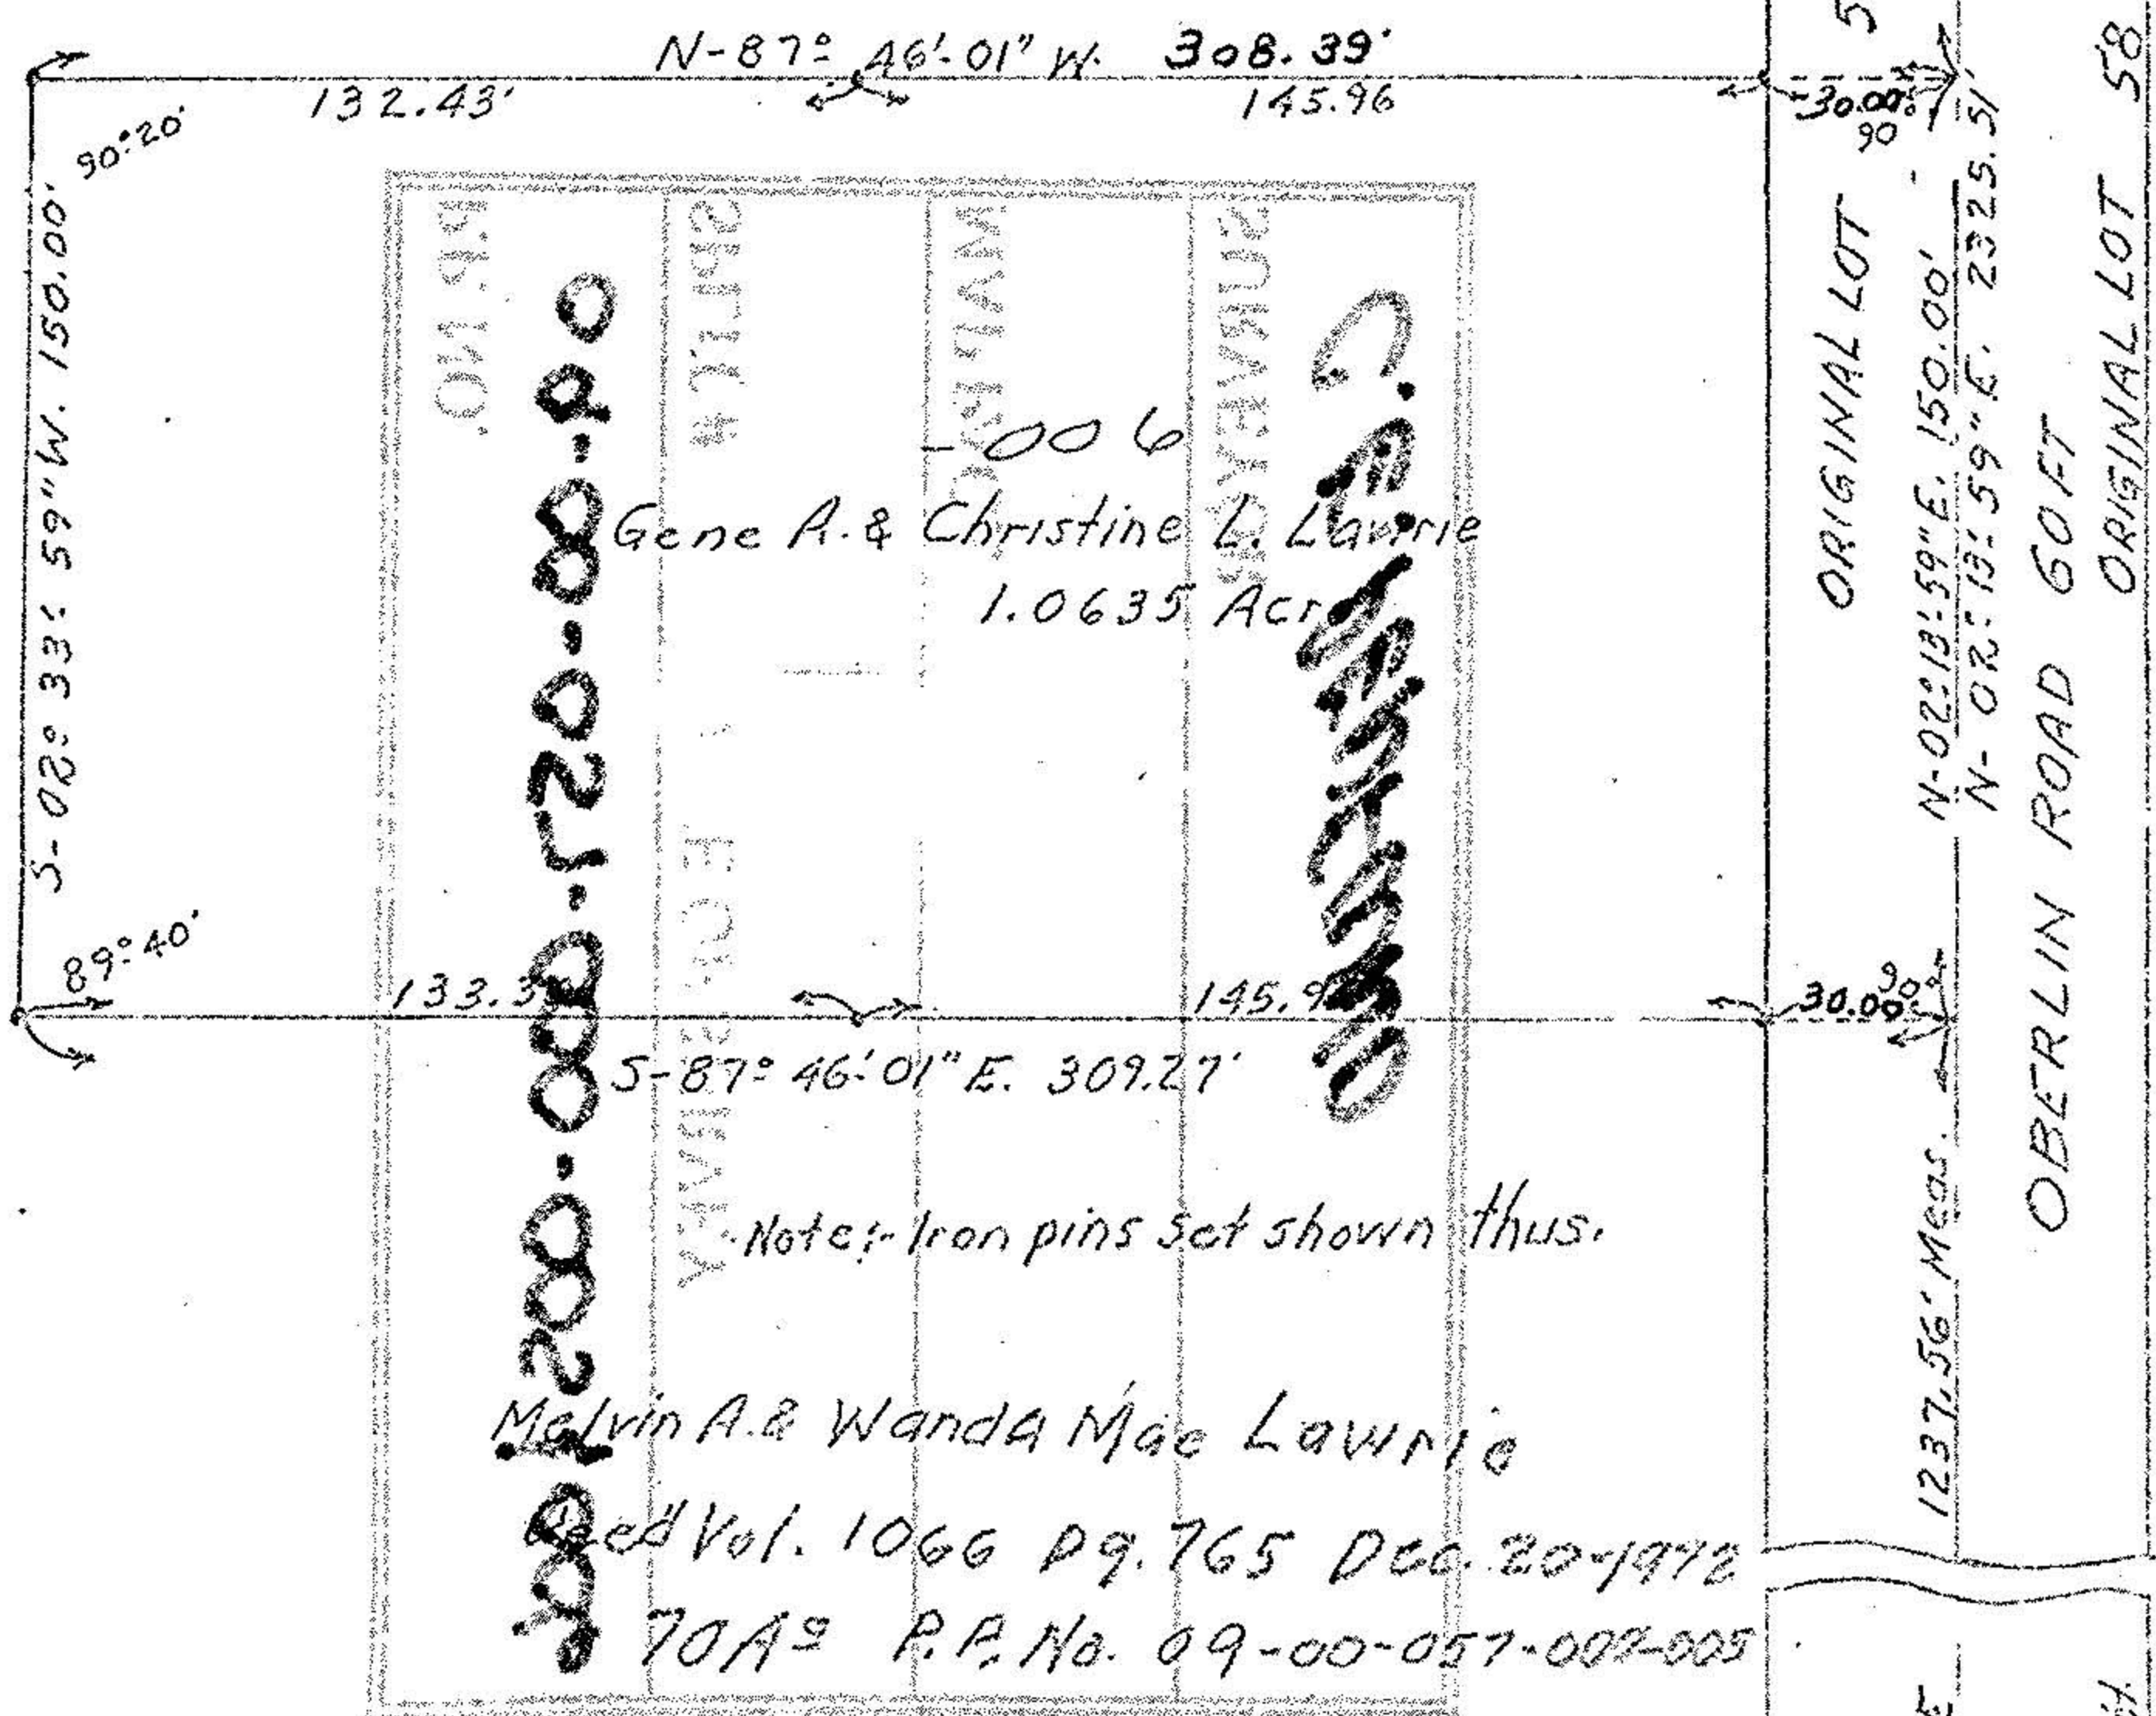 N-87° 46'-01" W. 308.39'
132.43'
145.96
30.00'
90°
90°20'
S-02° 33' 59" W. 150.00'
-006
Gene A. & Christine L. Lawrie
1.0635
89°40'
30.00'
90°
S-87° 46' 01" E. 309.27'
Note:- Iron pins set shown thus.
Melvin A. & Wanda Mae Lawrie
Deed Vol. 1066 Pg. 765 Dec. 20-1972
70A° P.P. No. 09-00-057-000-005
ORIGINAL LOT 5
N-02° 13' 59" E. 150.00'
N-02° 13' 59" E. 2325.51'
1237.56' Meas.
OBERLIN ROAD 60 FT
ORIGINAL LOT 58
P.P. NO.
SPLIT #
SURVEYOR